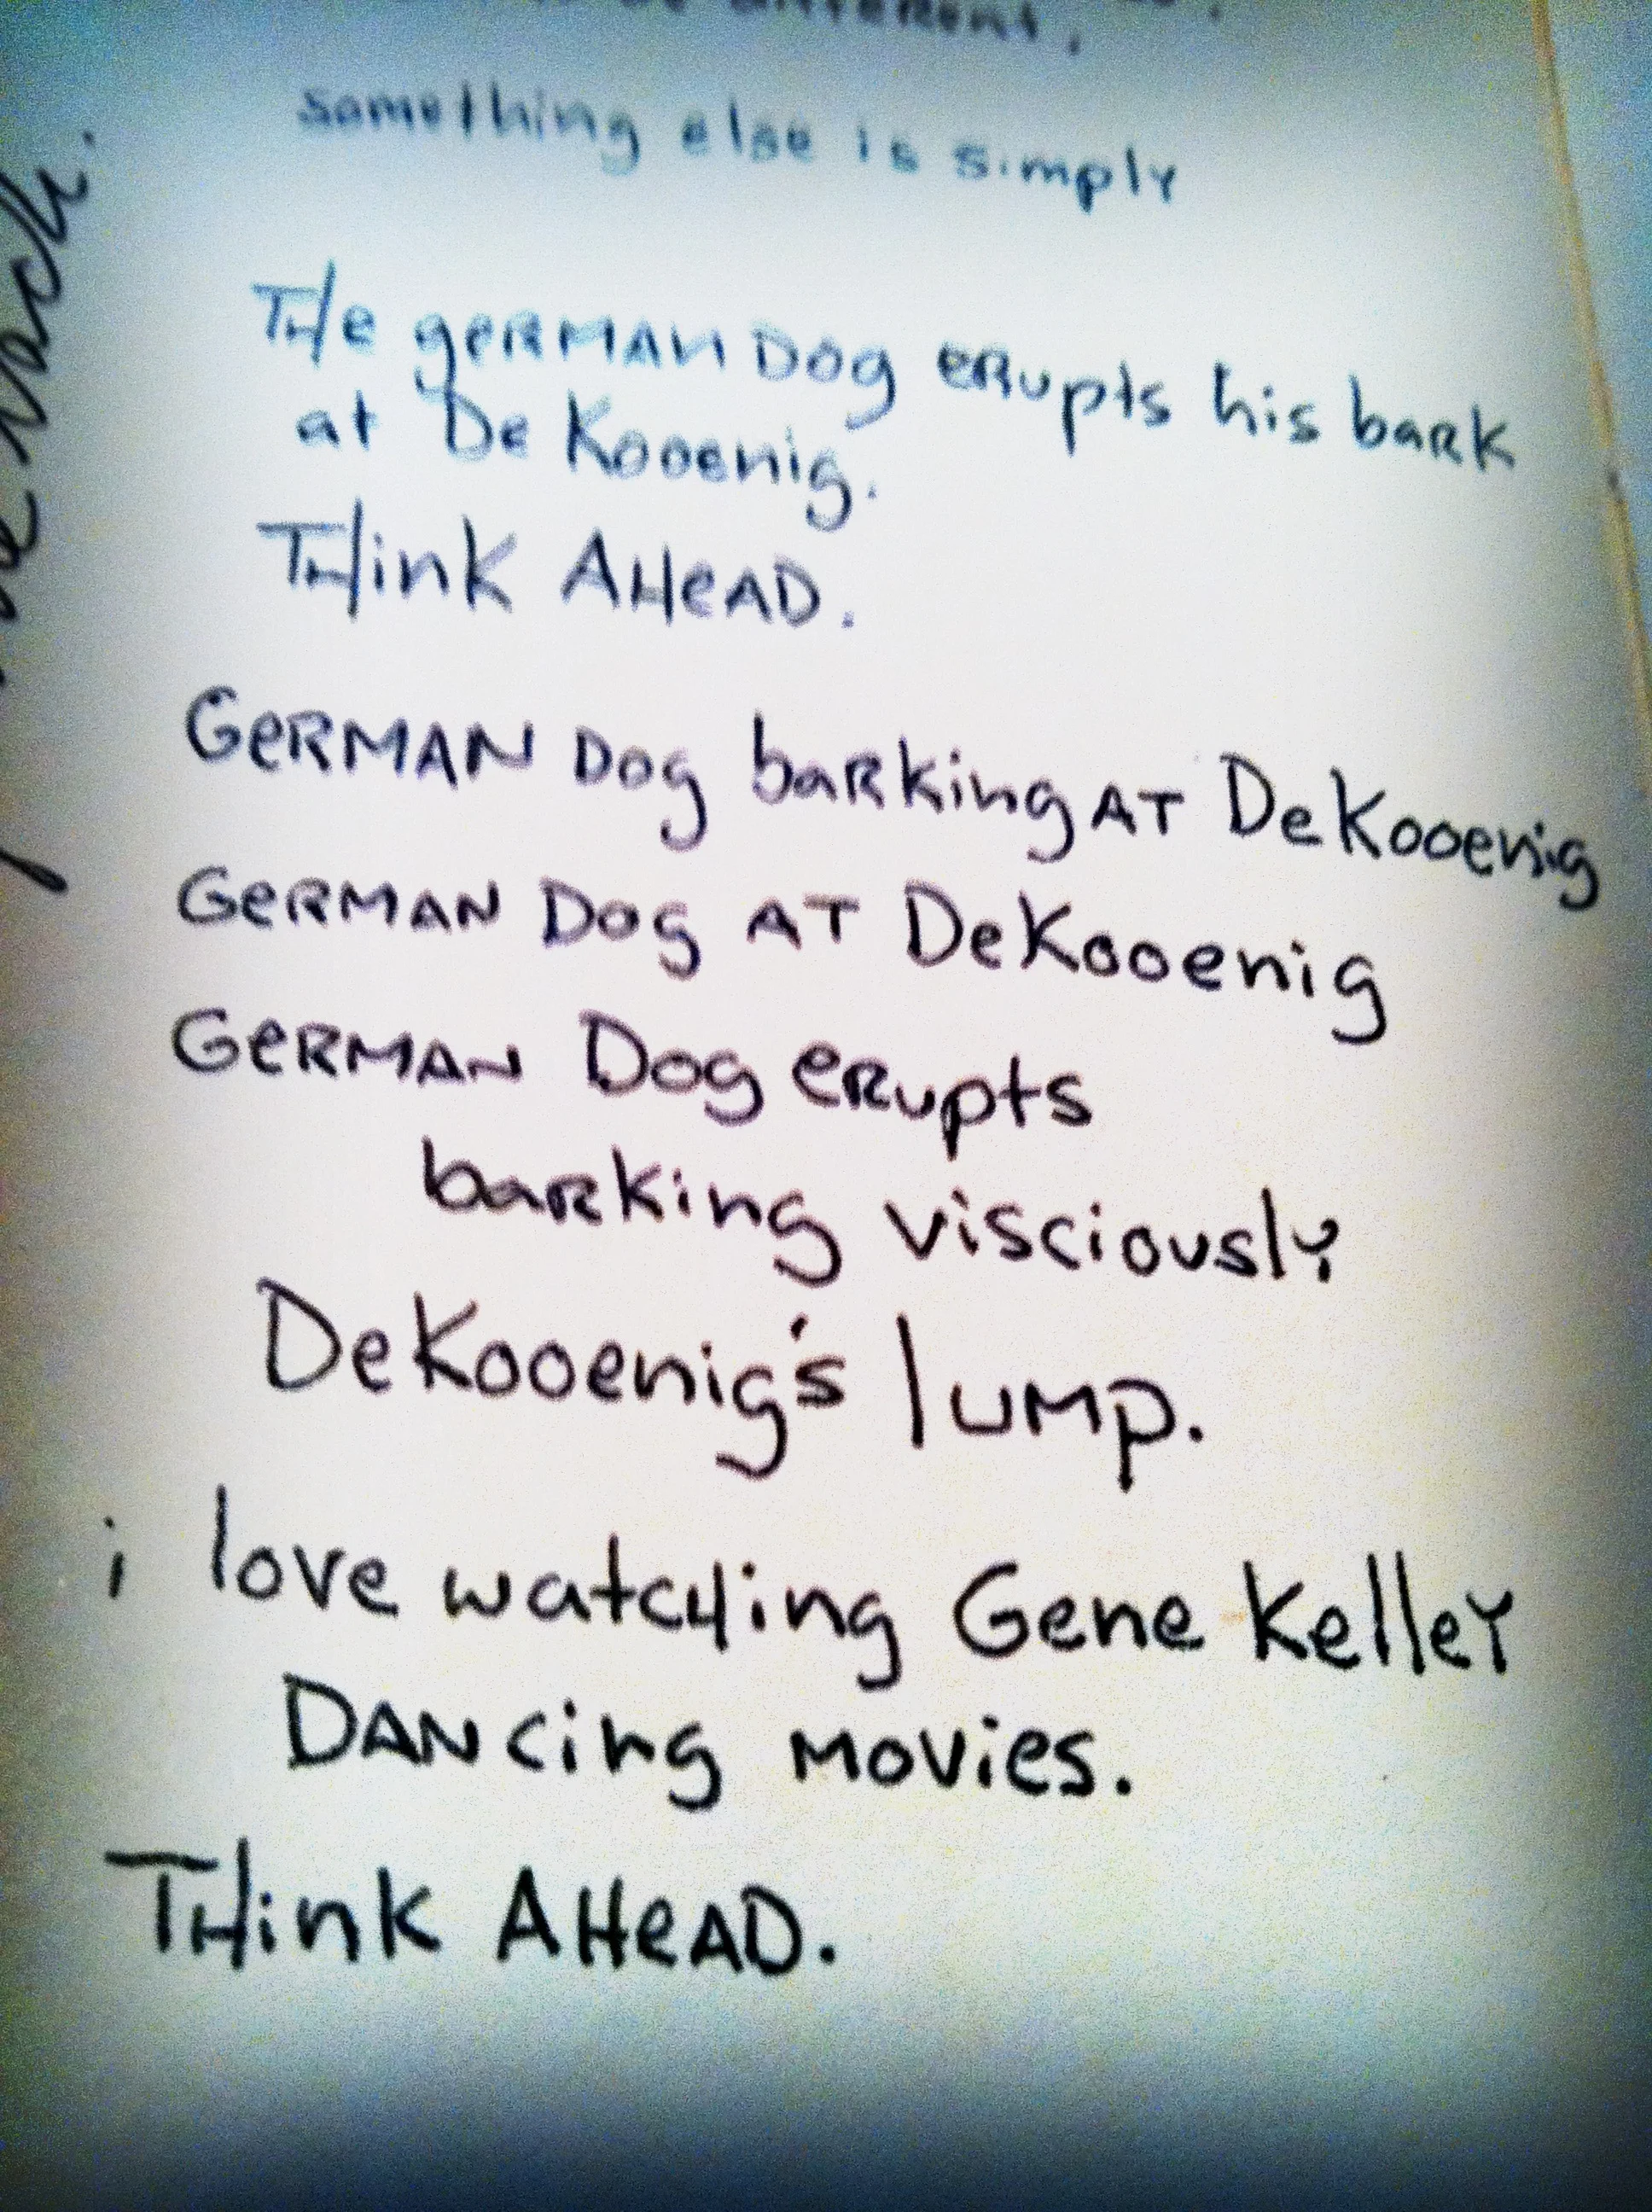 different,
something else is simply
THe geRMAN Dog eRupts his baRk
at De Kooenig.
THink AHeAD.
GeRMAN Dog baRking AT DeKooenig
GeRMAN Dog AT DeKooenig
GeRMAN Dog eRupts
baRking visciously
DeKooenig's lump.
i love watcHing Gene KelleY
DANcing Movies.
THink AHeAD.